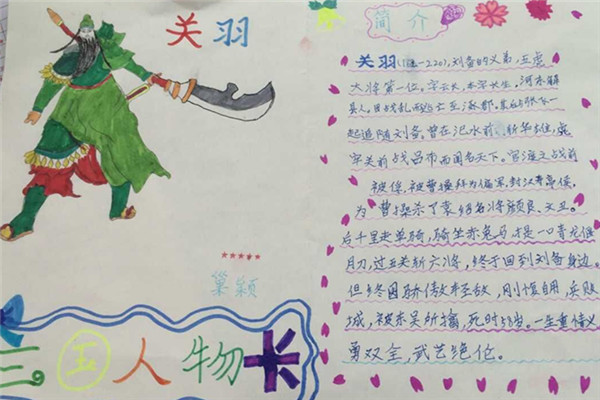 关羽
简介
关羽(182—220),刘备的义弟,五虎
大将第一位。字云长,本字长生,河东解
县人。因战乱而逃亡至涿郡,与张飞一
起追随刘备。曾在汜水前斩华雄,虎
牢关前战吕布而闻名天下。官渡之战前
被俘,被曹操拜为偏军,封汉寿亭侯。
为曹操杀了袁绍名将颜良、文丑。
后千里走单骑,骑坐赤兔马,才提一口青龙偃
月刀,过五关斩六将,终于回到刘备身边。
但终因骄傲轻敌,刚愎自用,兵败
城,被东吴所擒,死时58岁。一生重情义
勇双全,武艺绝伦。
巢颖
三。国人物卡